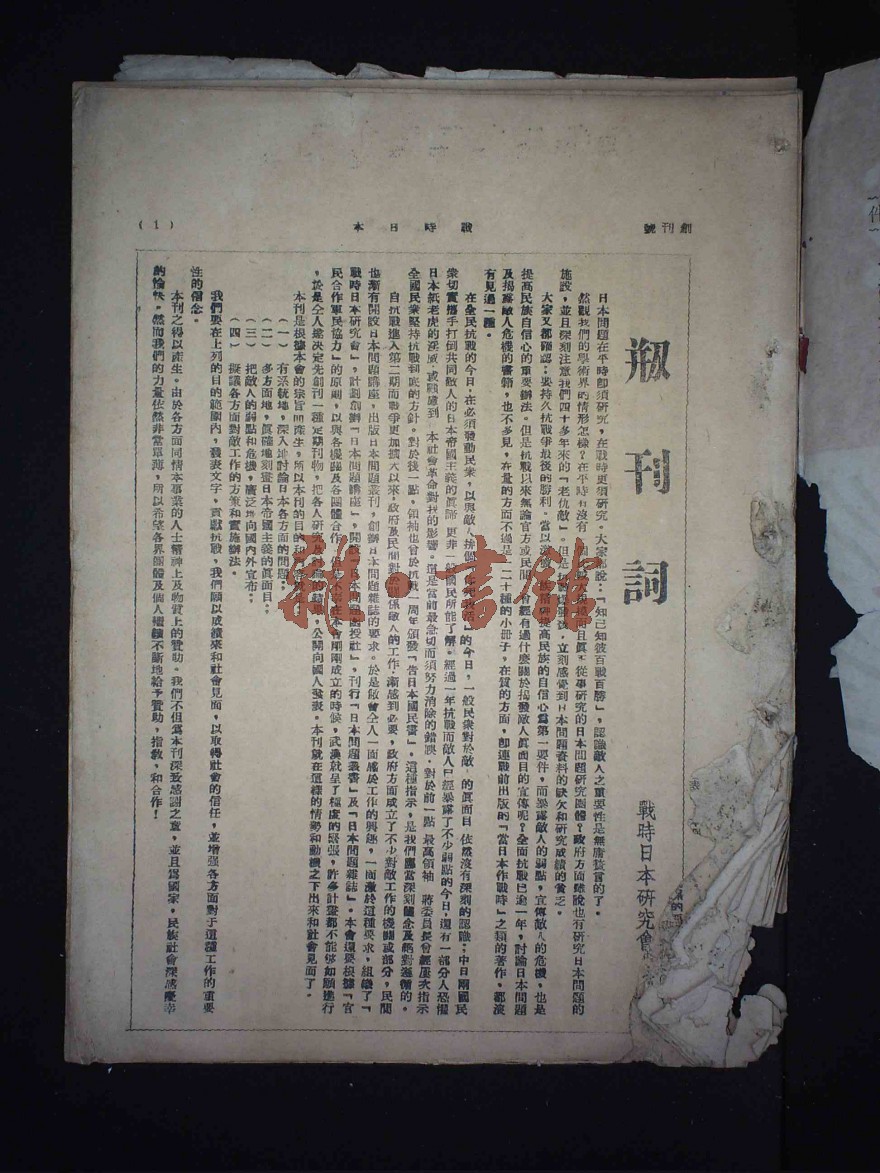 創刊號
戰時日本
(1)
刱刊詞
戰時日本研究會
日本問題在平時卽須研究,在戰時更須研究。大家都說:『知己知彼百戰百勝』,認識敵人之重要性是無庸贅言的了。
然觀我們的學術界的情形怎樣?在平時有沒有一個規模而且眞從事研究的日本問題研究團體?政府方面雖說也有研究日本問題的
施設,並且深刻注意我們四十多年來的『老仇敵』。但是抗戰,立刻感覺到日本問題資料的缺欠和研究成績的貧乏。
大家又都確認:要持久抗戰爭最後的勝利。當以提高民族的自信心爲第一要件,而暴露敵人的弱點,宣傳敵人的危機,也是
提高民族自信心的重要辦法。但是抗戰以來無論官方或民間,會經有過什麼關於揭發敵人眞面目的宣傳呢?全面抗戰已過一年,討論日本問題
及揭露敵人危機的書籍,也不多見,在量的方面不過是一二十種的小冊子,在質的方面,卽連戰前出版的『當日本作戰時』之類的著作,都沒
有見過一種。
在全民抗戰的今日,在必須發動民衆,以與敵人拚個『你死我活』的今日,一般民衆對於敵人的眞面目,依然沒有深刻的認識;中日兩國民
衆切實攜手打倒共同敵人的日本帝國主義的眞諦,更非一般國民所能了解。經過一年抗戰而敵人已經暴露了不少弱點的今日,還有一部分人恐懼
日本紙老虎的淫威,或顧慮到日本社會革命對我的影響。這是當前最急切而須努力消除的錯誤。對於前一點,最高領袖 蔣委員長曾經屢次指示
全國民衆堅持抗戰到底的方針。對於後一點,領袖也曾於抗戰一周年頒發『告日本國民書』。這種指示,是我們應當深刻體念及絕對遵循的。
自抗戰進入第二期而戰爭更加擴大以來,政府及民間對於關係敵人的工作,漸感到必要,政府方面成立了不少對敵工作的機關或部分,民間
也漸有開設日本問題講座,出版日本問題叢刊,創辦日本問題雜誌的要求。於是敝會仝人一面感於工作的興趣,一面激於這種要求,組織了『
戰時日本研究會』,計劃創辦『日本問題講座』,開設『日本問題函授社』,刊行『日本問題叢書』及『日本問題雜誌』。本會還要根據『官
民合作軍民協力』的原則,以與各機關及各團體合作。但是不幸在本會剛剛成立的時候,武漢就呈了極度的緊張,許多計畫都不能够如願進行
,於是仝人遂決定先創刊一種定期刊物,把各人研究及討論的結果,公開向國人發表。本刊就在這樣的情勢和動機之下出來和社會見面了。
本刊是根據本會的宗旨而產生,所以本刊的目的和內容就是:
(一) 有系統地,深入地討論日本各方面的問題;
(二) 多方面地,眞確地刻畫日本帝國主義的眞面目;
(三) 把敵人的弱點和危機,廣泛地向國內外宣布;
(四) 擬議各方面對敵工作的方策和實施辦法。
我們要在上列的目的範圍內,發表文字,貢獻抗戰,我們願以成績來和社會見面,以取得社會的信任,並增强各方面對于這種工作的重要
性的信念。
本刊之得以產生。由於各方面同情本事業的人士精神上及物質上的贊助。我們不但爲本刊深致感謝之意,並且爲國家,民族社會深感慶幸
的愉快。然而我們的力量依然非常單薄,所以希望各界團體及個人繼續不斷地給予贊助,指敎,和合作!